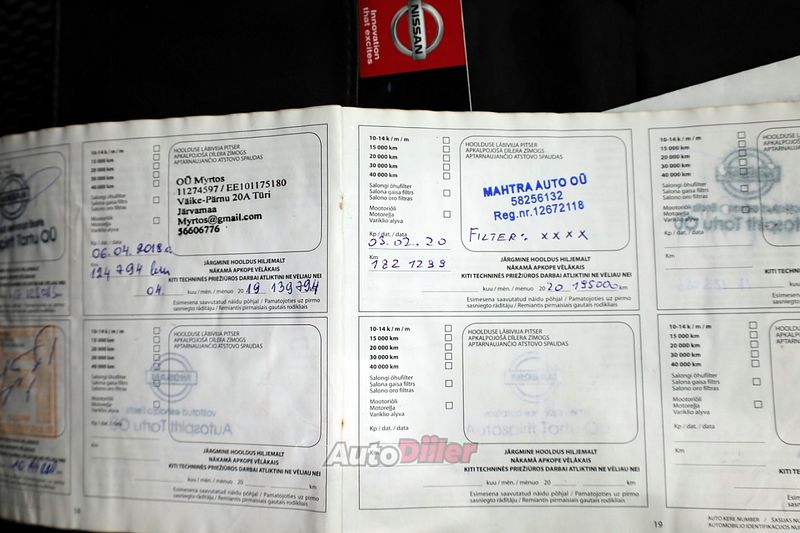 Innovation
that excites
NISSAN
HOOLDUSE LÄBIVIIJA PITSER
APKALPOJOŠĀ DĪLERA ZĪMOGS
APTARNAUJANČIO ATSTOVO SPAUDAS
10-14 k / m / m
15 000 km
20 000 km
30 000 km
40 000 km
Salongi õhufilter
Salona gaisa filtrs
Salono oro filtras
Mootoriõli
Motoreļļa
Variklio alyva
OÜ Myrtos
11274597 / EE101175180
Väike-Pärnu 20A Türi
Järvamaa
Myrtos@gmail.com
56606776
Kp / dat. / data
06.04.2018a
Km
124 794 km
JÄRGMINE HOOLDUS HILJEMALT
NĀKAMĀ APKOPE VĒLĀKAIS
KITI TECHNINĖS PRIEŽIŪROS DARBAI ATLIKTINI NE VĖLIAU NEI
04. kuu / mēn. / mėnuo 20 19 139794
Esimesena saavutatud näidu põhjal / Pamatojoties uz pirmo
sasniegto rādītāju / Remiantis pirmaisiais gautais rodikliais
10-14 k / m / m
15 000 km
20 000 km
30 000 km
40 000 km
Salongi õhufilter
Salona gaisa filtrs
Salono oro filtras
Mootoriõli
Motoreļļa
Variklio alyva
HOOLDUSE LÄBIVIIJA PITSER
APKALPOJOŠĀ DĪLERA ZĪMOGS
APTARNAUJANČIO ATSTOVO SPAUDAS
MAHTRA AUTO OÜ
58256132
Reg.nr.12672118
FILTER: x x x x
Kp / dat. / data
03.02.20
Km
182 1239
JÄRGMINE HOOLDUS HILJEMALT
NĀKAMĀ APKOPE VĒLĀKAIS
KITI TECHNINĖS PRIEŽIŪROS DARBAI ATLIKTINI NE VĖLIAU NEI
kuu / mēn. / mėnuo 20 20 195000 km
Esimesena saavutatud näidu põhjal / Pamatojoties uz pirmo
sasniegto rādītāju / Remiantis pirmaisiais gautais rodikliais
10-14 k / m / m
15 000 km
20 000 km
30 000 km
40 000 km
Salongi õhufilter
Salona gaisa filtrs
Salono oro filtras
Mootoriõli
Motoreļļa
Variklio alyva
Kp / dat. / data
Km
10-14 k / m / m
15 000 km
20 000 km
30 000 km
40 000 km
Salongi õhufilter
Salona gaisa filtrs
Salono oro filtras
Mootoriõli
Motoreļļa
Variklio alyva
HOOLDUSE LÄBIVIIJA PITSER
APKALPOJOŠĀ DĪLERA ZĪMOGS
APTARNAUJANČIO ATSTOVO SPAUDAS
Kp / dat. / data
Km
JÄRGMINE HOOLDUS HILJEMALT
NĀKAMĀ APKOPE VĒLĀKAIS
KITI TECHNINĖS PRIEŽIŪROS DARBAI ATLIKTINI NE VĖLIAU NEI
kuu / mēn. / mėnuo 20 km
Esimesena saavutatud näidu põhjal / Pamatojoties uz pirmo
sasniegto rādītāju / Remiantis pirmaisiais gautais rodikliais
10-14 k / m / m
15 000 km
20 000 km
30 000 km
40 000 km
Salongi õhufilter
Salona gaisa filtrs
Salono oro filtras
Mootoriõli
Motoreļļa
Variklio alyva
HOOLDUSE LÄBIVIIJA PITSER
APKALPOJOŠĀ DĪLERA ZĪMOGS
APTARNAUJANČIO ATSTOVO SPAUDAS
Kp / dat. / data
Km
JÄRGMINE HOOLDUS HILJEMALT
NĀKAMĀ APKOPE VĒLĀKAIS
KITI TECHNINĖS PRIEŽIŪROS DARBAI ATLIKTINI NE VĖLIAU NEI
kuu / mēn. / mėnuo 20 km
Esimesena saavutatud näidu põhjal / Pamatojoties uz pirmo
sasniegto rādītāju / Remiantis pirmaisiais gautais rodikliais
10-14 k / m / m
15 000 km
20 000 km
30 000 km
40 000 km
Salongi õhufilter
Salona gaisa filtrs
Salono oro filtras
Mootoriõli
Motoreļļa
Variklio alyva
Kp / dat. / data
Km
AutoDiller
18
19
AUTO KERE NUMBER